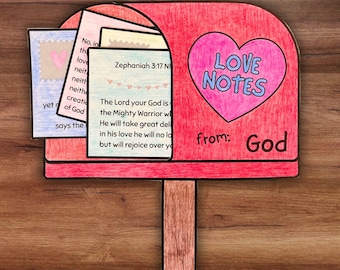 yet
says the
No, in
neith
neithe
neithe
creatio
of God
Zephaniah 3:17 N
The Lord your God is
the Mighty Warrior
He will take great deli
in his love he will no lo
but will rejoice over yo
LOVE
NOTES
from: God